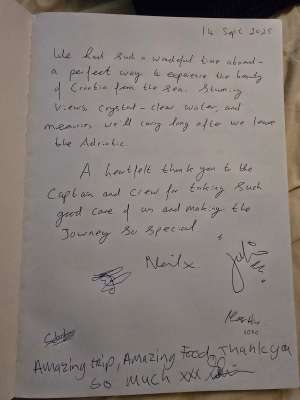 14 Sept 2025
We had such a wonderful time aboard -
a perfect way to experience the beauty
of Croatia from the sea. Stunning
views, crystal-clear water, and
memories we'll carry long after we leave
the Adriatic.
A heartfelt thank you to the
Captian and Crew for taking such
good care of us and making the
Journey so special
Neil x
Amazing trip, Amazing Food, Thank you
so much xxx